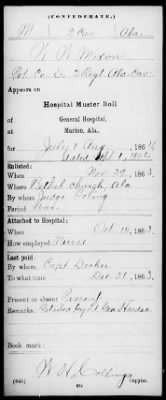 (CONFEDERATE.)
M 2 Cav. Ala.
W. W. Mixon
Pvt. Co. E, 2 Regt. Ala. Cav.
Appears on
Hospital Muster Roll
of
General Hospital,
Marion, Ala.,
for July & Aug, 186
dated Sept 1, 186
Enlisted:
When Nov. 29, 186
Where Bethel Church, Ala
By whom Judge
Period War
Attached to Hospital:
When Oct 16, 1863
How employed Nurse
Last paid:
By whom Capt
To what time Dec 31, 1863
Present or absent Present
Remarks: Detailed by
Book mark:
W. H. Collings
(646) Copyist.